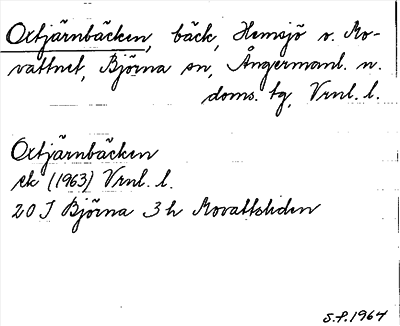 Oxtjärnbäcken, bäck, Hemsjö v. Mo-
vattnet, Björna sn, Ångermanl. n.
doms. tg, Vrnl. l.
Oxtjärnbäcken
ek (1963) Vrnl. l.
20 J Björna 3 h Movattsliden
S.F. 1964